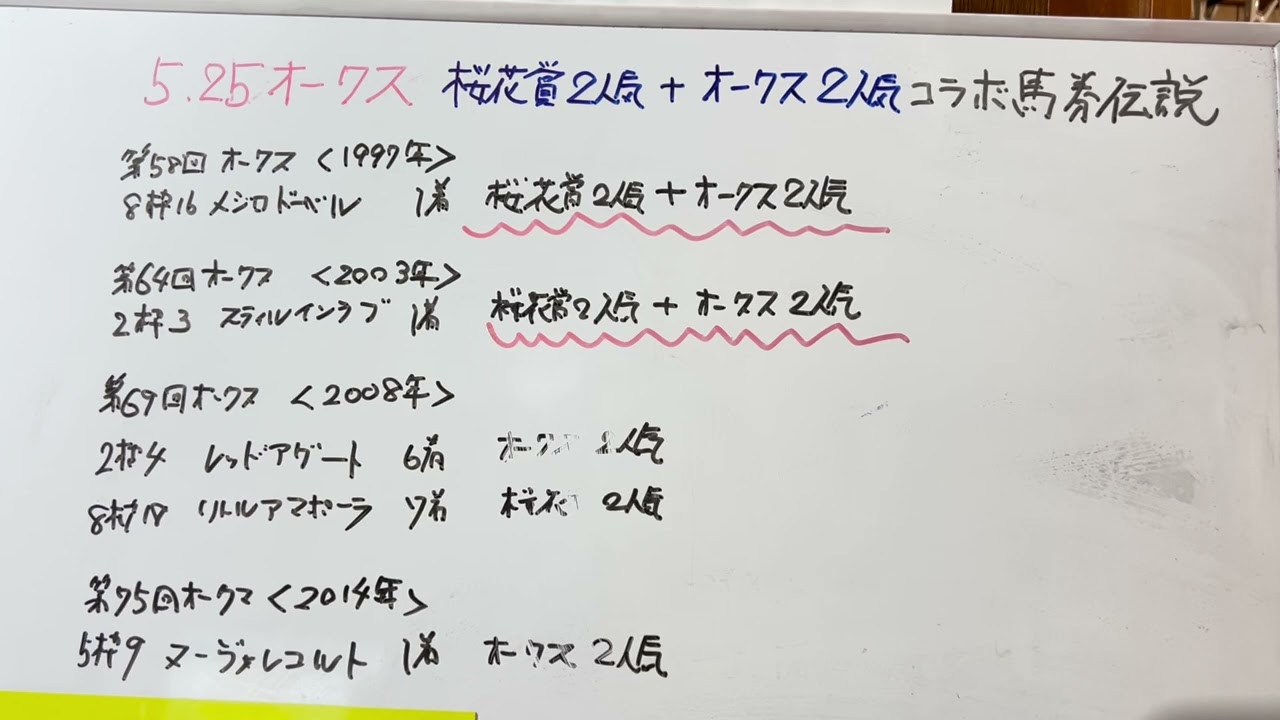 5.25オークス 桜花賞2人気+オークス2人気コラボ馬券伝説
第58回 オークス <1997年>
8枠16 メジロドーベル 1着 桜花賞2人気+オークス2人気
第64回オークス <2003年>
2枠3 スティルインラブ 1着 桜花賞2人気+オークス2人気
第69回オークス <2008年>
2枠4 レッドアゲート 6着 オークス 2人気
8枠18 リトルアマポーラ 7着 桜花 2人気
第75回オークス <2014年>
5枠9 ヌーヴォレコルト 1着 オークス 2人気